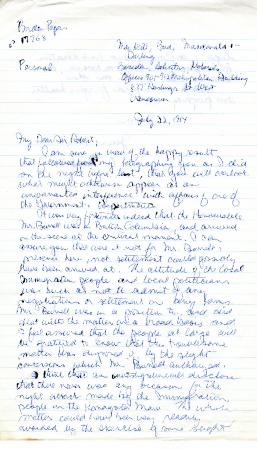 Borden Papers
Personal
Bird, Macdonald &
Darling
Barristers, Solicitors, Notaries
Offices 301-3 Metropolitan Building
837 Hastings St. West
Vancouver
July 22, 1914
My Dear Sir Robert,
I am sure in view of the happy result
that followed my telegraphing you as I did
on the night before last, that you will
what might otherwise appear as an
unwarranted interference with affairs of one
of the Government
It was very fortunate indeed that the Honourable
Mr. Burrell was in British Columbia, and arrived
on the scene at the critical moment. I can
assure you that were it not for Mr. Burrell's
presence here, no settlement could possibly
have been arrived at. The attitude of the local
immigration people and local politicians
was such as not to admit of any
negotiations or settlement on being
Mr. Burrell was in a position to, and did
deal with the matter in a broad
I feel assured that the people at large will
be gratified to know that this troublesome
matter was disposed of by the slight
concessions which Mr. Burrell authorized.
I think that an investigation will disclose
that there never was any reason for the
night attack made by the Immigration
people on the Komagata Maru. The whole
matter could have been very readily
avoided by the exercise of some slight